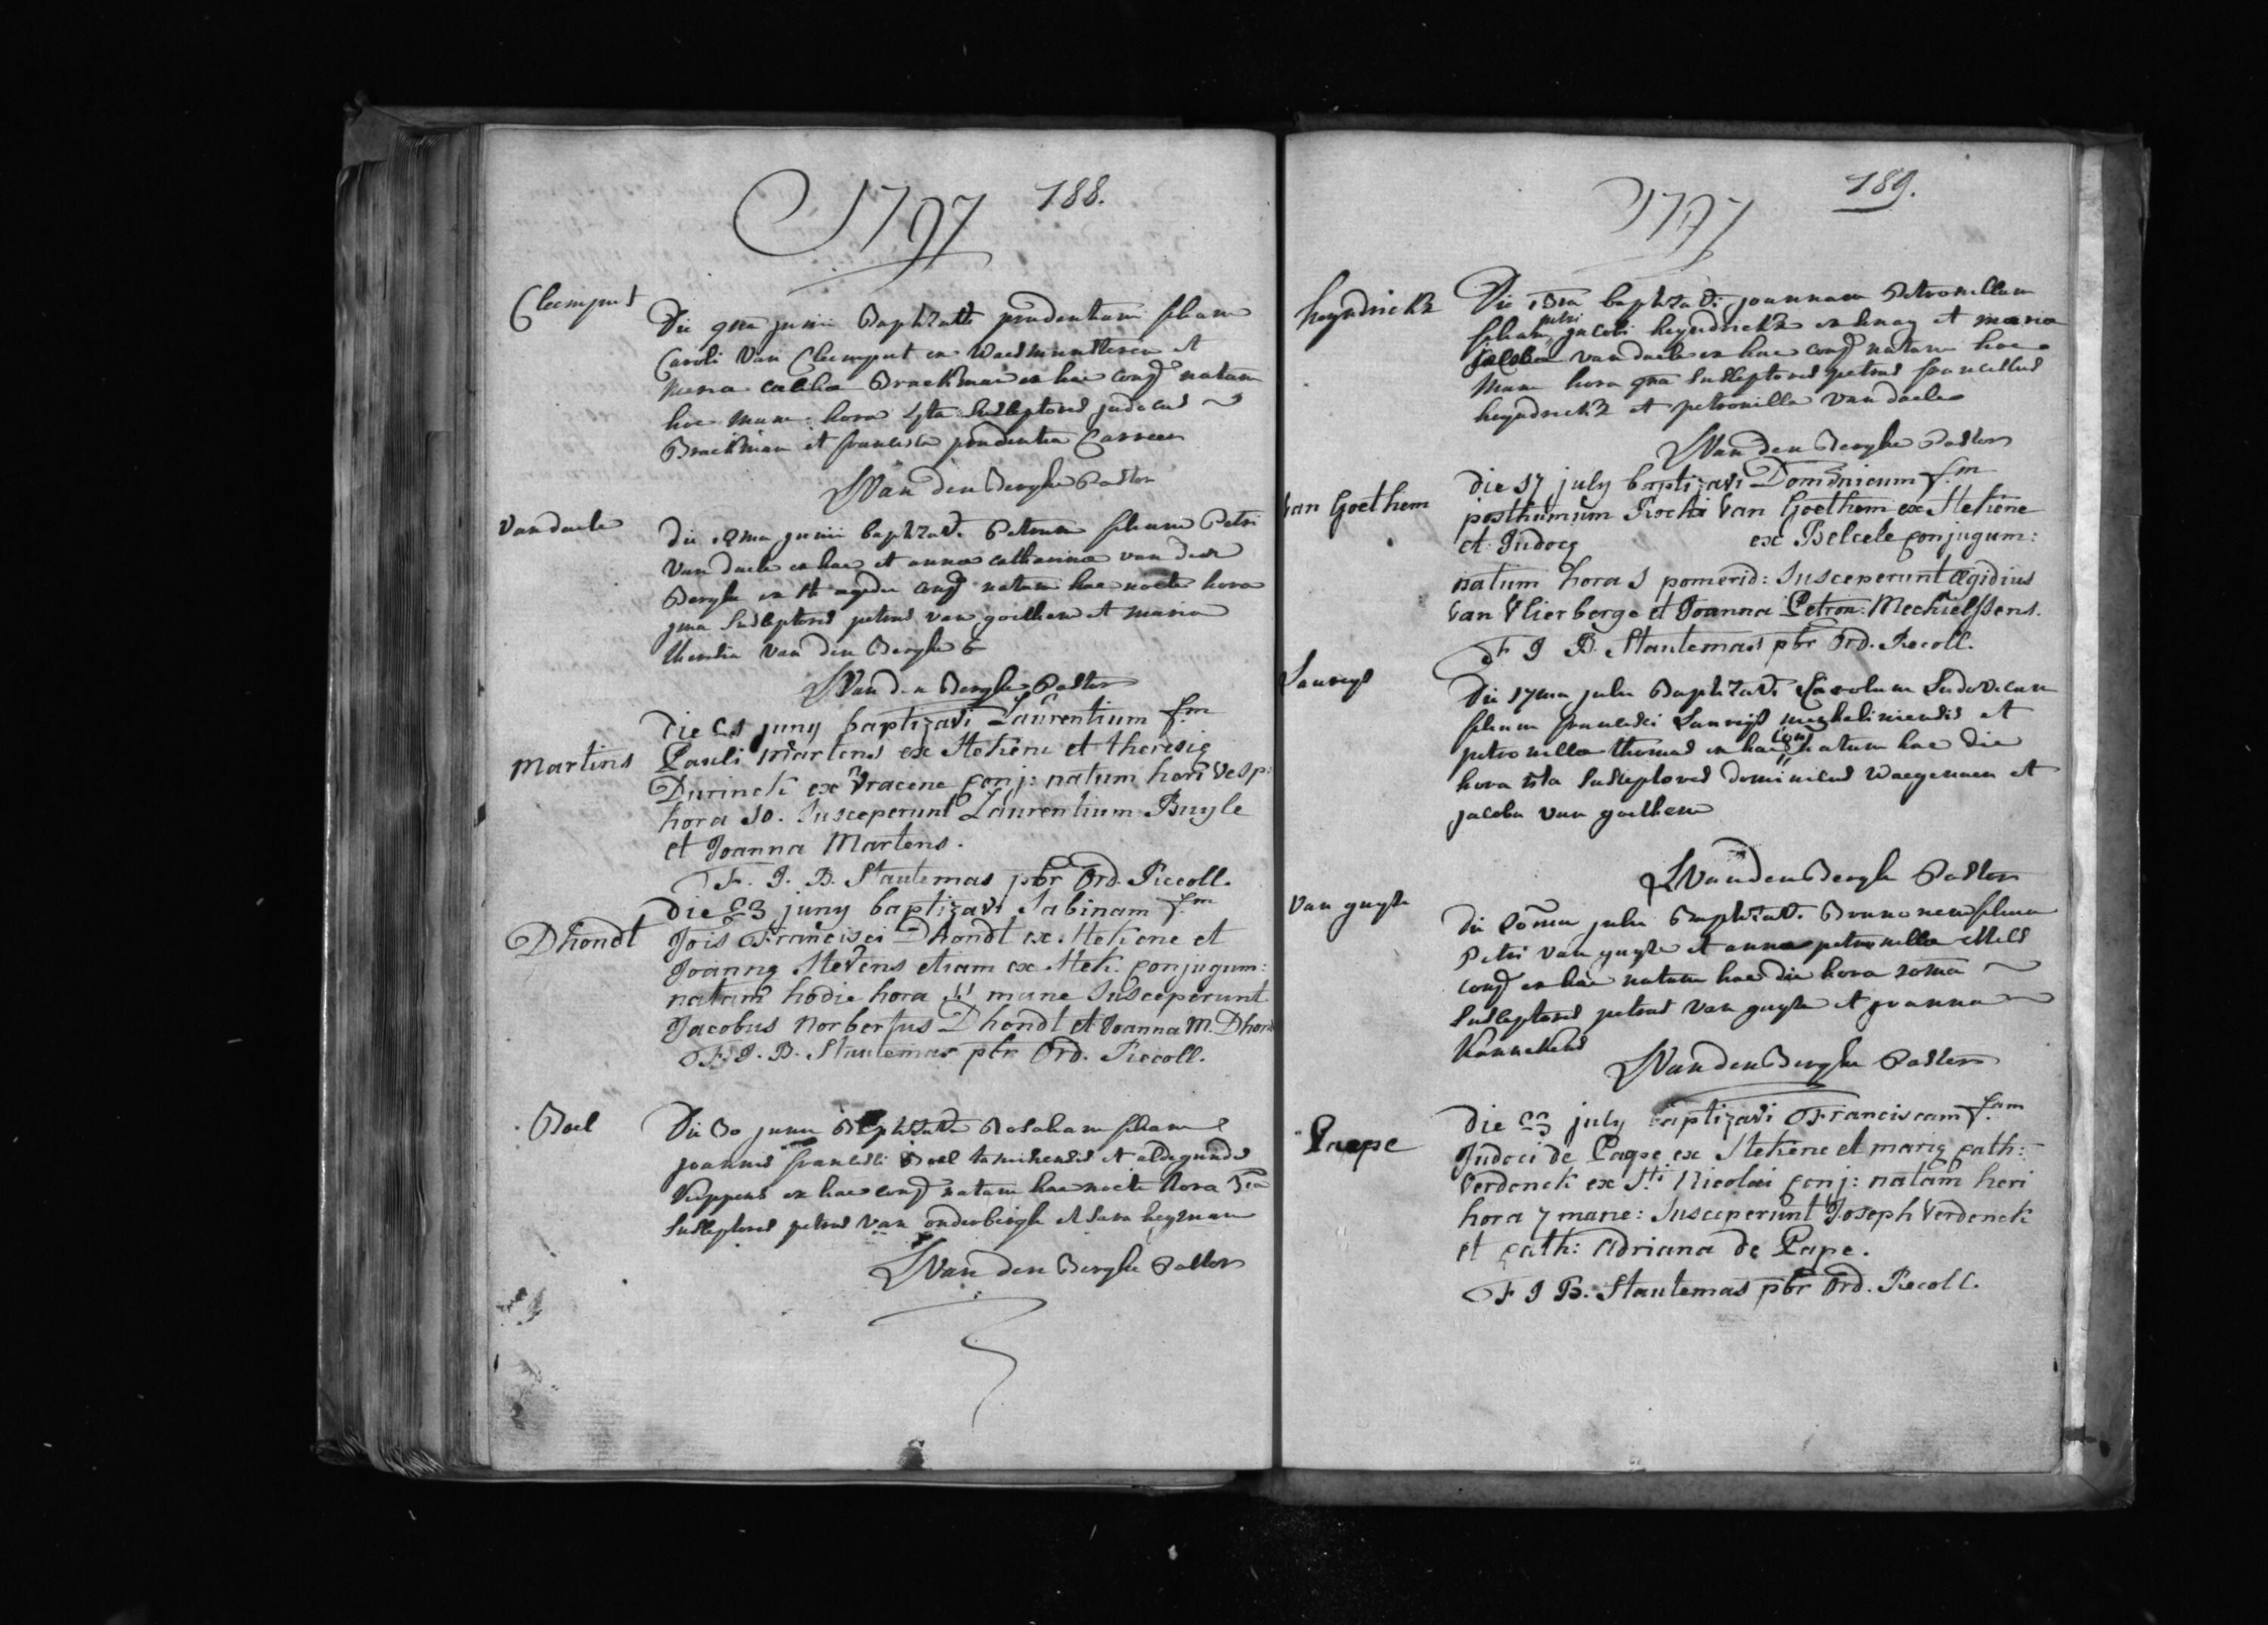 1797 188.
Cleemput
Die 9na junii Baptzatt prudentiam filiam
Caroli Van Cleemput ex Waesmunster et
Brackman ex hac conj natam
hoc mane hora 4ta Susceptores judocus
Brackman et francisca prudentia
JVan den Berghe Pastor
Van daele
die junii baptzavi Petrum filium Petri
Van daele ex hac et anna catharina van den
Berghe ex conj natum hac nocte hora
Susceptores petrus van goethem et maria
theresia Van den Berghe
JVan den Berghe Pastor
Martins
Die 21 juny baptizavi Laurentium f.m
Pauli Martens ex Stekene et theresie
Durinck ex Vracene conj: natum heri vesp:
hora 10. Susceperunt Laurentium Buyle
et Joanna Martens.
F. J. B. Stautemas pbr Ord. Recoll.
Dhondt
Die 23 juny baptizavi Sabinam f.m
Jois Francisci Dhondt ex Stekene et
Joanne Stevens etiam ex Stek. conjugum:
natam hodie hora 11 mane Susceperunt
Jacobus Norbertus Dhondt et Joanna M. Dhon
F. J. B. Stautemas pbr Ord. Recoll.
Boel
Die 30 junii Rosaliam filiam
joannis francisci Boel et aldegundis
ex hac conj natam hac nocte hora
Susceptores petrus Van et Sara heyman
JVan den Berghe Pastor
1797 189.
heyndrickx
Die baptzavi joannam Petronillam
filiam petri jacobi heyndrickx ex et maria
jacoba van daele ex hac conj natam hoc
mane hora 9na Susceptores petrus franciscus
heyndrickx et petronilla van daele
JVan den Berghe Pastor
Van Goethem
die 17 july baptizavi Dominicum f.m
posthumum Rochi Van Goethem ex Stekene
et Judoce ex Belcele conjugum:
natum hora 1 pomerid: Susceperunt Ægidius
Van Vlierberge et Joanna Petron: Mechielssens.
F J B. Stautemas pbr Ord. Recoll.
Laureys
Die 17ma julii Baptzavi Carolum Ludovicum
filium francisci Laureys mechliniensis et
petronilla thomas ex hac conj natum hac die
hora Susceptores dominicus Waegeman et
jacoba van goethem
JVandenBergh Pastor
Van guyse
die julii Baptzavi Brunonem filium
Petri van guyse et anna petronilla
conj ex hac natum hac die hora
Susceptores petrus Van guyse et joanna
JVandenBerghe Pastor
Paepe
die 23 july baptizavi Franciscam f.am
Judoci de Pape ex Stekene et marie cath:
Verdonck ex S.ti Nicolai conj: natam heri
hora 7 mane: Susceperunt Joseph Verdonck
et cath: Adriana de Pape.
F J B. Stautemas pbr Ord. Recoll.